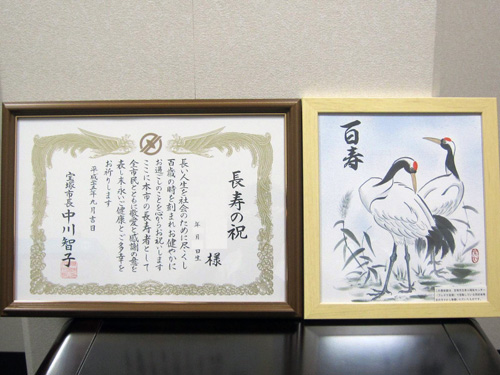 長寿の祝
年 月 日生
様
長い人生を社会のために尽くし
百歳の時を刻まれお健やかに
お過ごしのことを心からお祝いします
ここに本市の長寿者として
全市民とともに敬愛と感謝の意を
表し末永いご健康とご多幸を
お祈りします
平成二十五年九月吉日
宝塚市長 中川智子
百春